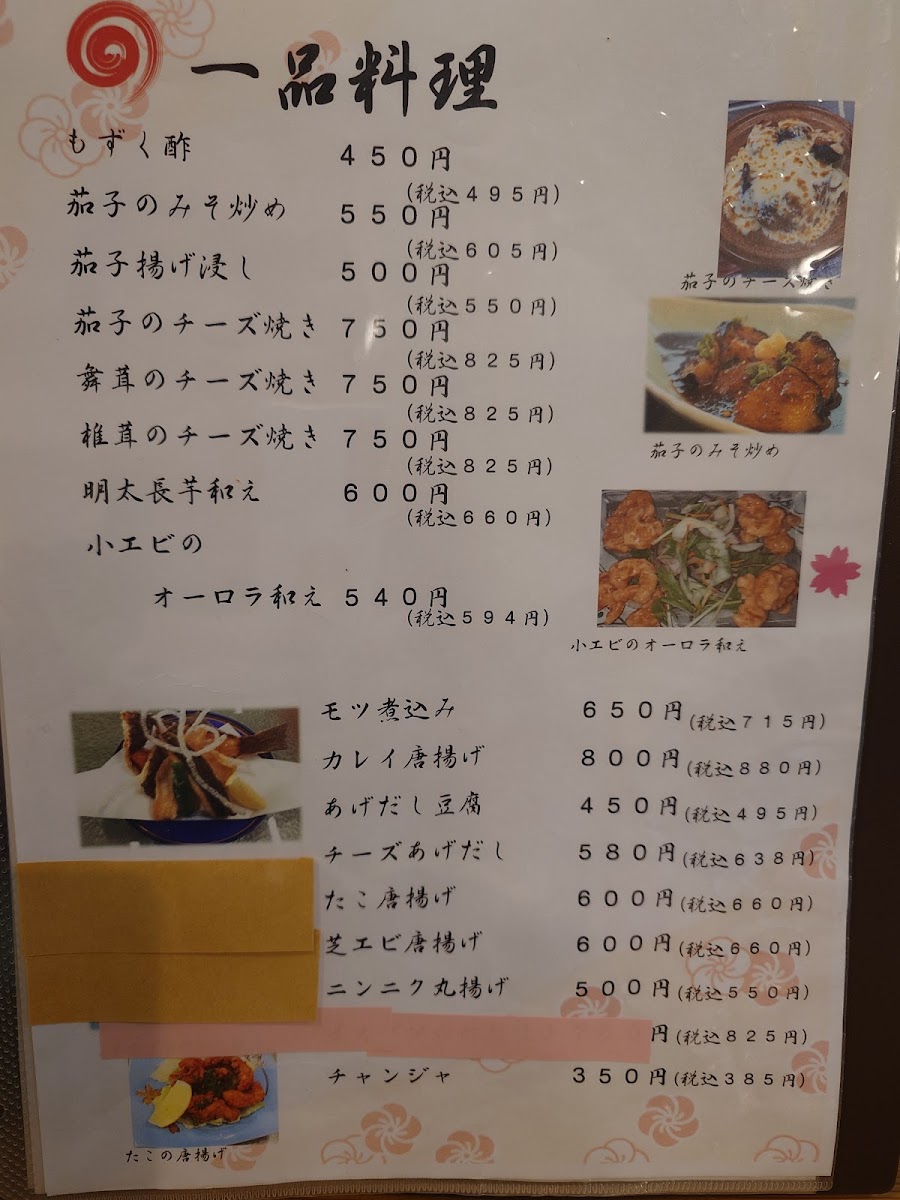 一品料理
もずく酢 450円
(税込495円)
茄子のみそ炒め 550円
(税込605円)
茄子揚げ浸し 500円
(税込550円)
茄子のチーズ焼き 750円
(税込825円)
舞茸のチーズ焼き 750円
(税込825円)
椎茸のチーズ焼き 750円
(税込825円)
明太長芋和え 600円
(税込660円)
小エビの
オーロラ和え 540円
(税込594円)
茄子のチーズ焼き
茄子のみそ炒め
小エビのオーロラ和え
モツ煮込み 650円(税込715円)
カレイ唐揚げ 800円(税込880円)
あげだし豆腐 450円(税込495円)
チーズあげだし 580円(税込638円)
たこ唐揚げ 600円(税込660円)
芝エビ唐揚げ 600円(税込660円)
ニンニク丸揚げ 500円(税込550円)
円(税込825円)
チャンジャ 350円(税込385円)
たこの唐揚げ